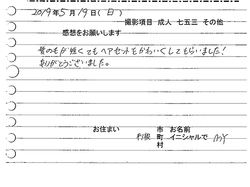 2019年5月19日(日)
撮影項目 成人 七五三 その他
感想をお願いします
髪の毛が短くてもヘアセットをかわいくしてもらいました!
ありがとうございました。
お住まい 市 お名前
町 イニシャルで
村